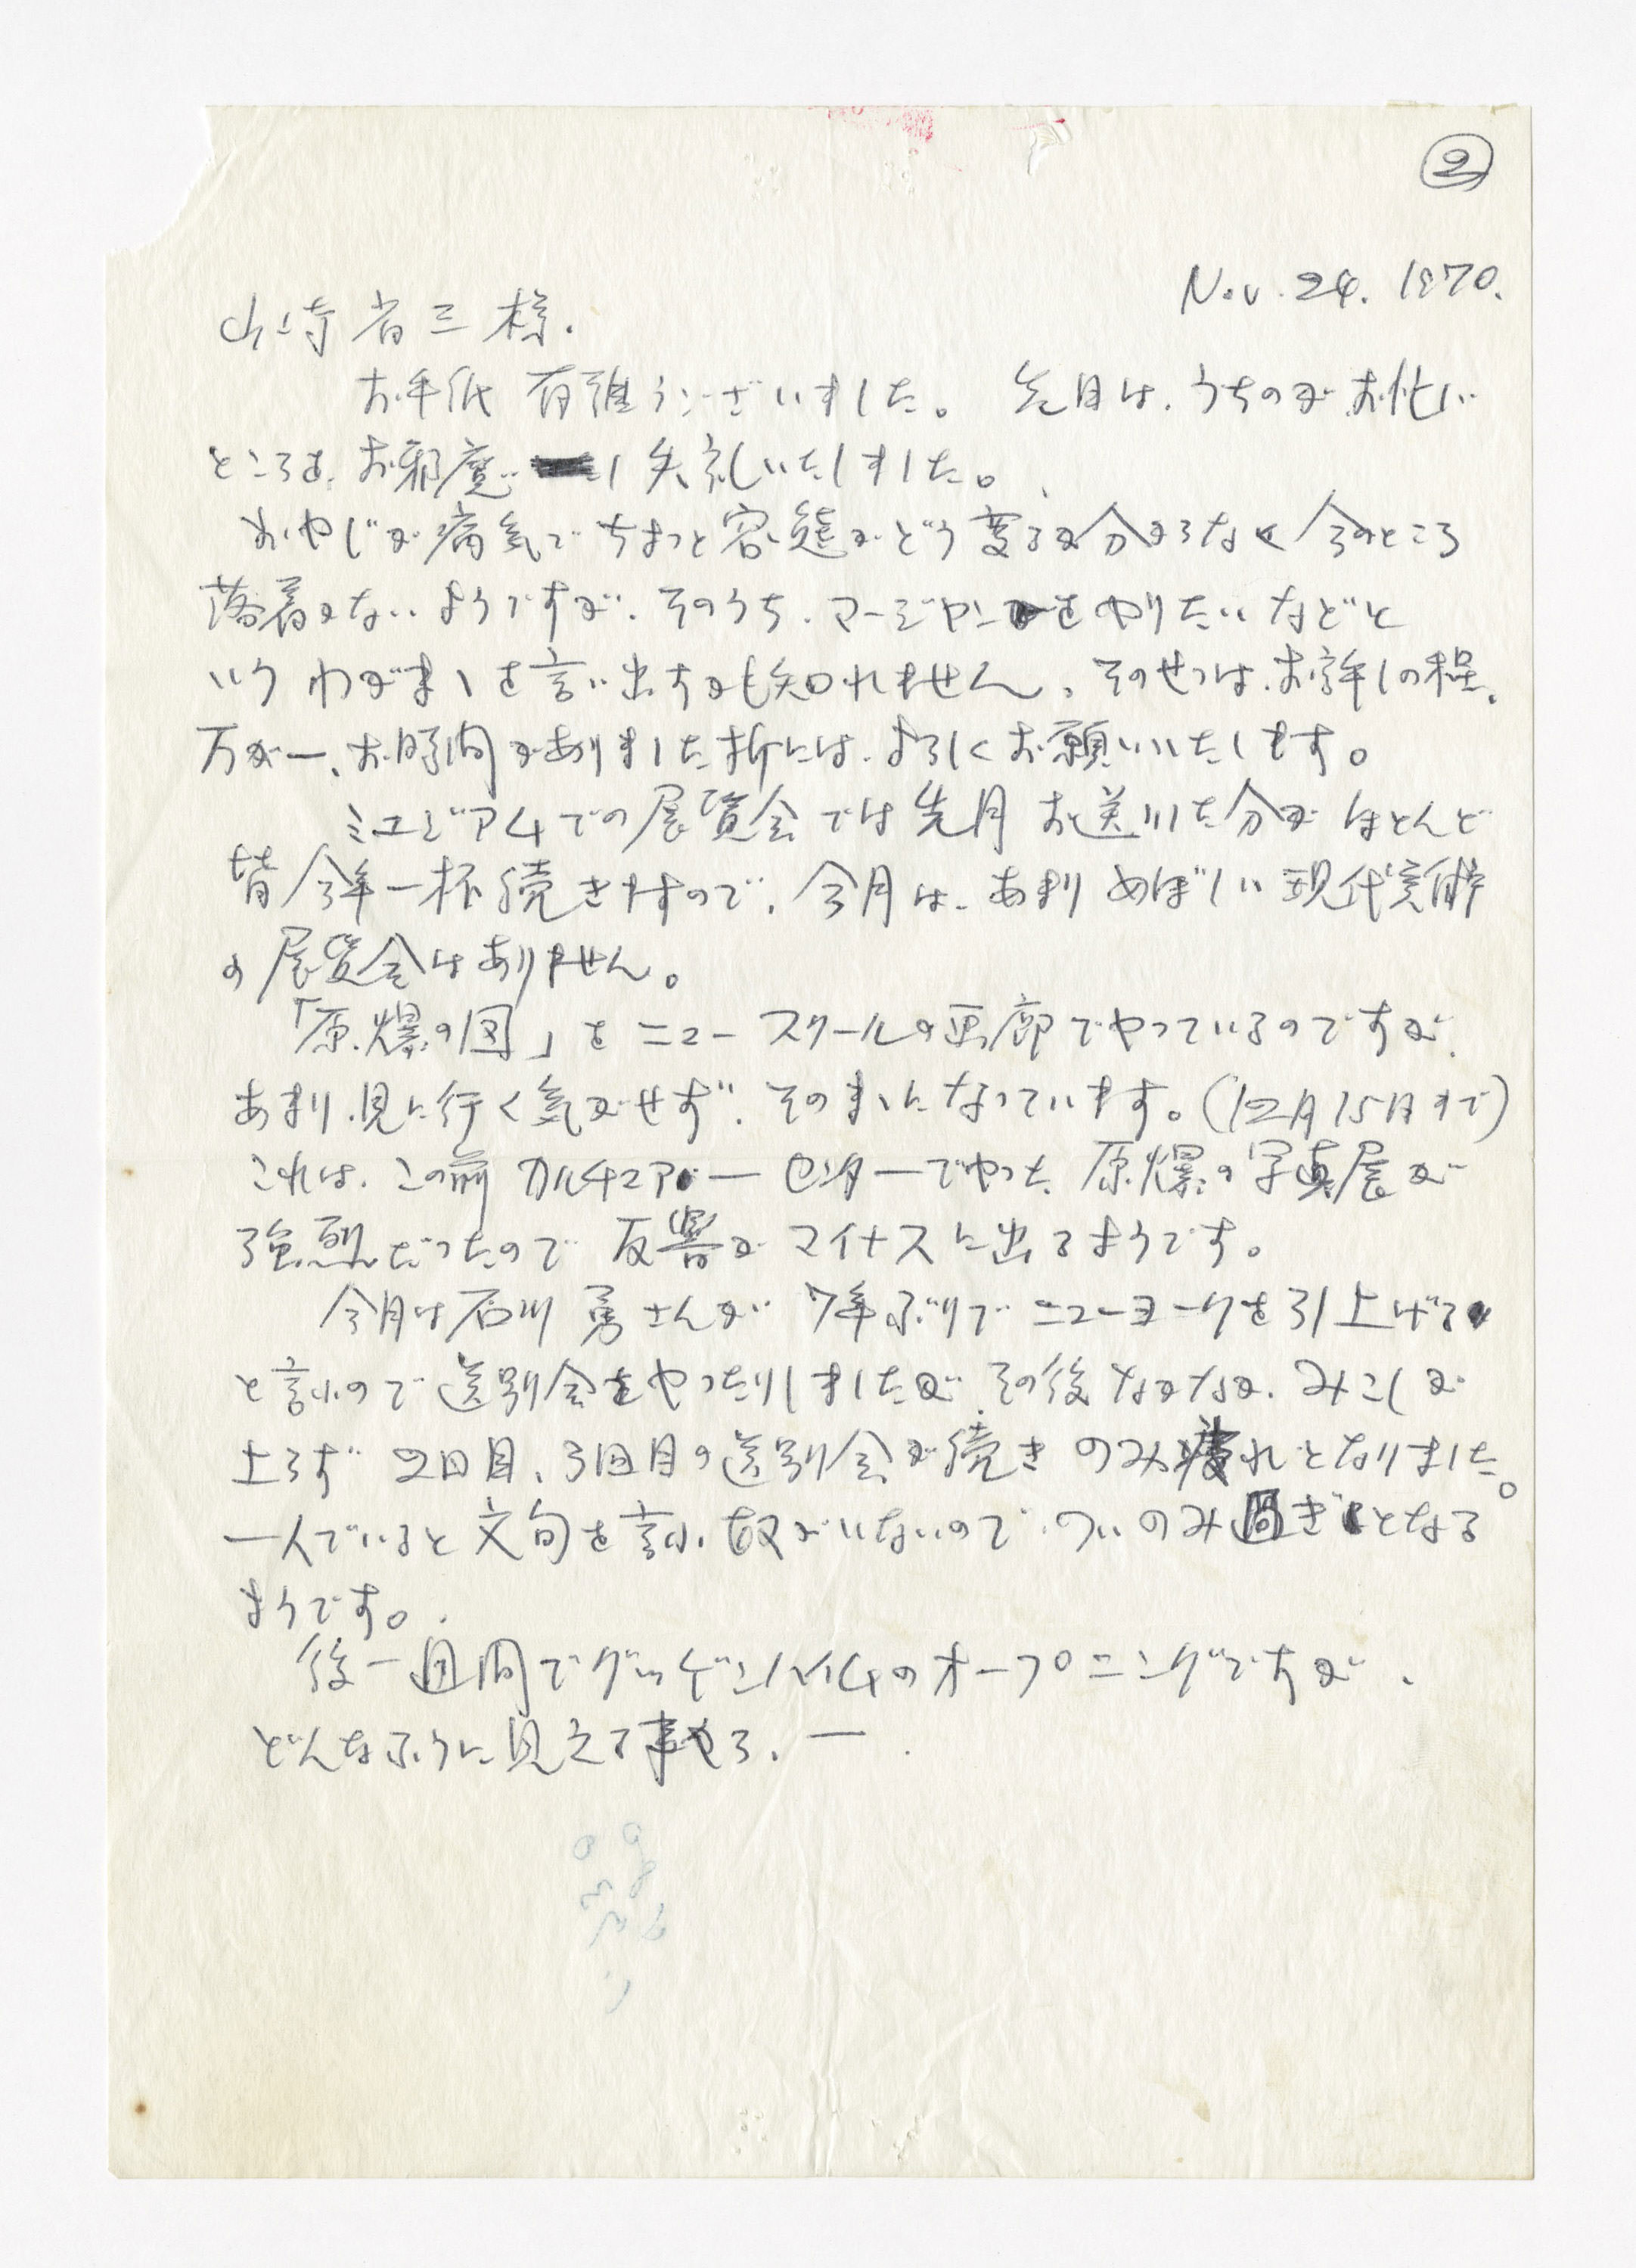 ②
Nov. 24. 1970.
山崎省三様.
お手紙有難うございました。 先月は、うちのが、お忙しい
ところを、お邪魔し失礼いたしました。
おやじが病気でちょっと容態がどう変るか分からなく今のところ
落着かないようですが、そのうち、マージャンをやりたいなどと
いうわがまゝを言い出すかも知れません。そのせつは、お許しの程、
万が一、お時間がありました折には、よろしくお願いいたします。
ミュジアムでの展覧会では先月お送りした分がほとんど
皆今年一杯続きますので、今月は、あまりめぼしい現代美術
の展覧会はありません。
「原爆の図」をニュースクールの画廊でやっているのですが、
あまり、見に行く気がせず、そのまゝになっています。(12月15日まで)
これは、この前カルチュアーセンターでやった原爆の写真展が
強烈だったので反響がマイナスに出るようです。
今月は石川勇さんが7年ぶりでニューヨークを引上げる
と言ふので送別会をやったりしましたが、その後なかなか、みこしが
上らず2回目、3回目の送別会が続きのみ疲れとなりました。
一人でいると文句を言ふ奴がいないので、ついのみ過ぎとなる
ようです。
後一週間でグッゲンハイムのオープニングですが、
どんなふうに見えて来るやら、一